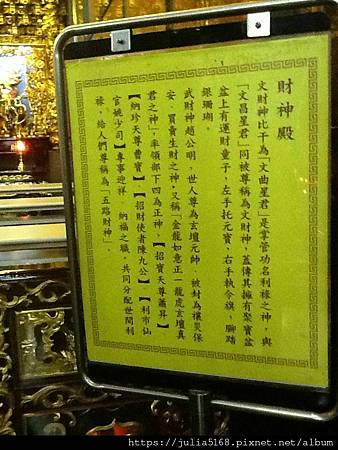 財神殿
文財神比干為「文曲星君」是掌管功名利祿之神,與
「文昌星君」同被尊稱為文財神,蓋傳其擁有聚寶盆
盆上有運財童子,左手托元寶,右手執令旗,腳踏
銀珊瑚。
武財神趙公明,世人尊為玄壇元帥,被封為禳災保
安、買賣生財之神,又稱「金龍如意正一龍虎玄壇真
君之神」,率領部下四為正神,【招寶天尊蕭昇】
【納珍天尊曹寶】、【招財使者陳九公】、【利市仙
官姚少司】專事迎祥、納福之職,共同分配世間利
祿,給人們尊稱為「五路財神」。
https://julia5168.pixnet.net/album